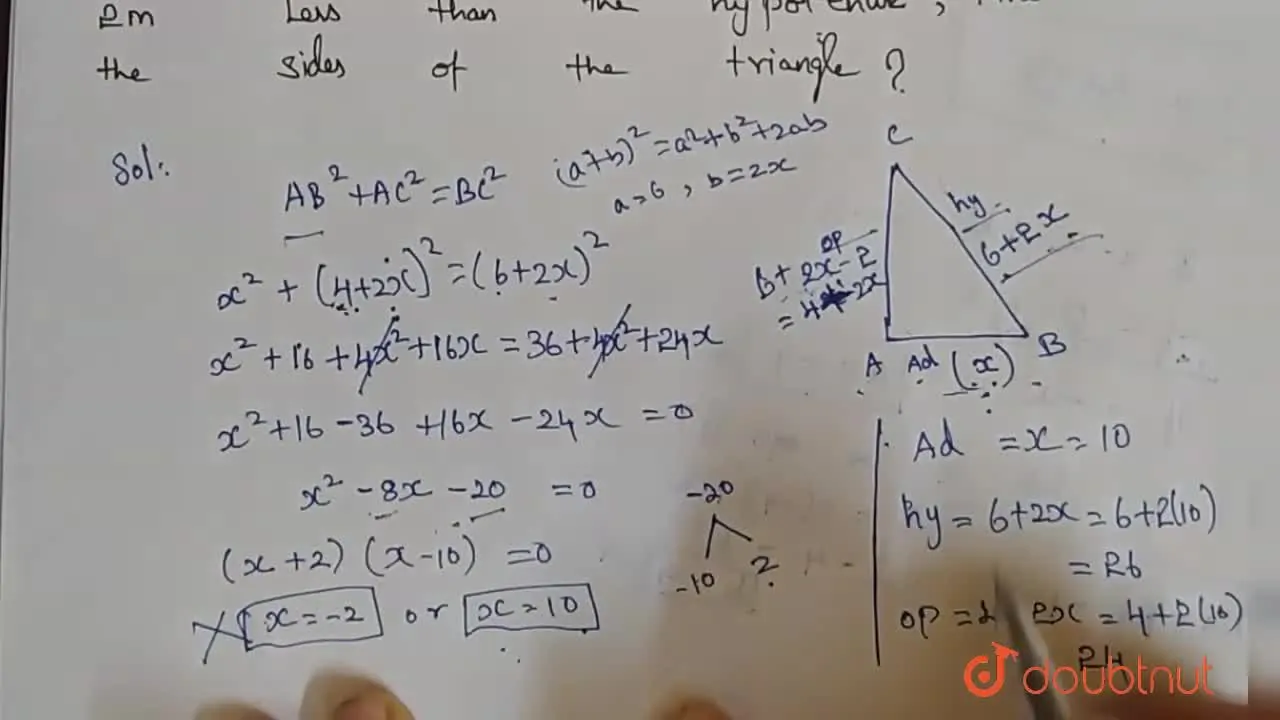 2m less than the hypotenuse,
the sides of the triangle ?
Sol:
AB² + AC² = BC²
(a+b)² = a² + b² + 2ab
a = 6 , b = 2x
x² + (4+2x)² = (6+2x)²
x² + 16 + 4x² + 16x = 36 + 4x² + 24x
x² + 16 - 36 + 16x - 24x = 0
x² - 8x - 20 = 0
(x+2) (x-10) = 0
x = -2 or x = 10
-20
-10 2
C
hy
6+2x
op
6 + 2x - 2
= 4+2x
A Ad (x) B
Ad = x = 10
hy = 6+2x = 6+2(10)
= 26
op = 2x = 4+2(10)
24
doubtnut